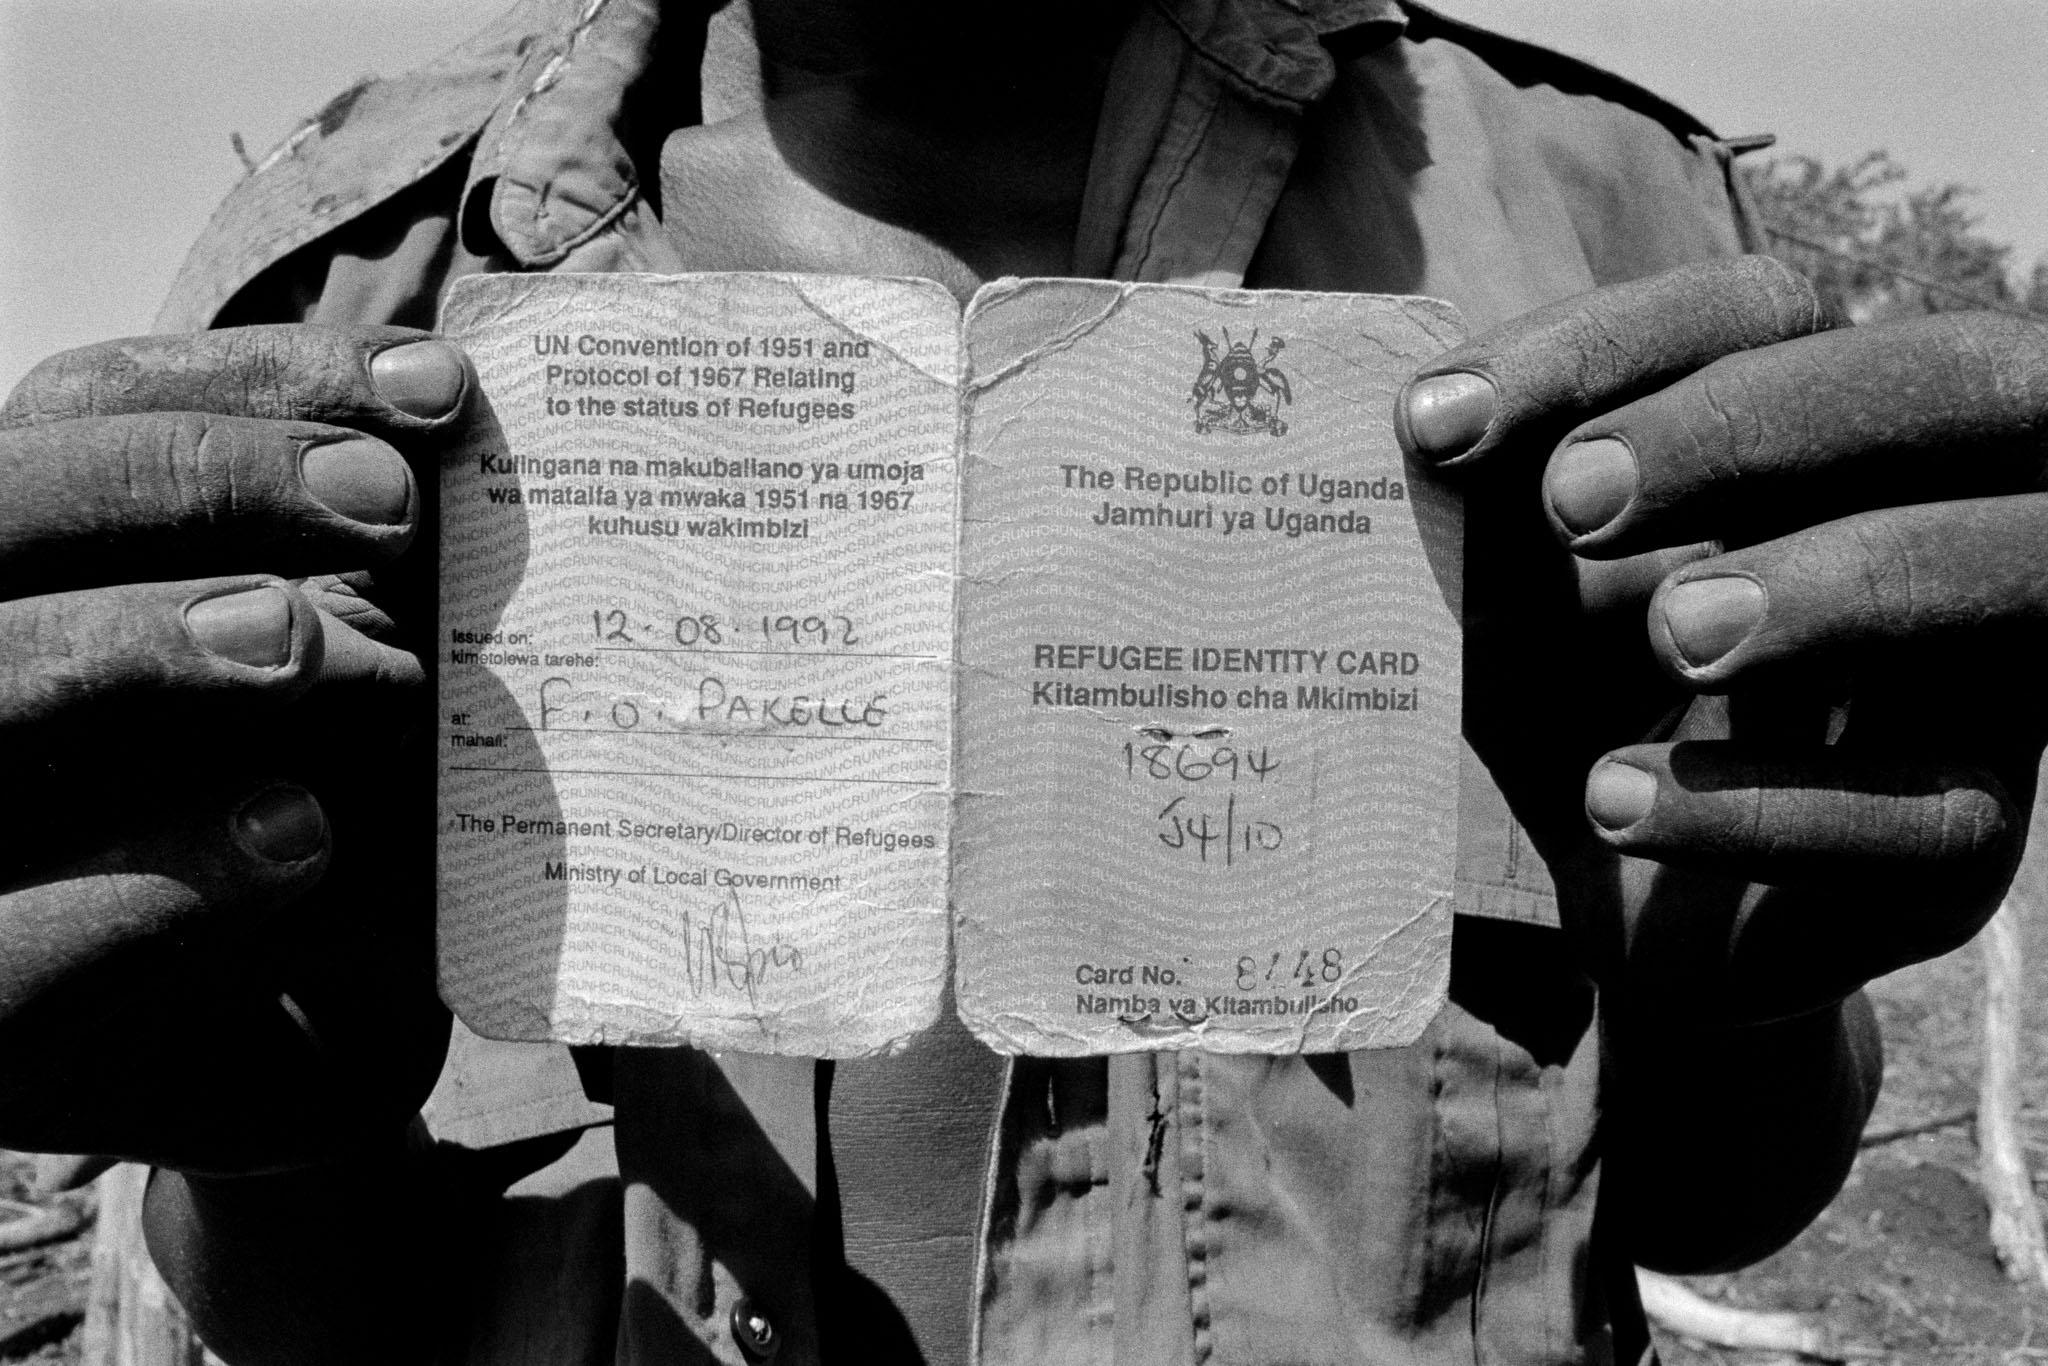 UN Convention of 1951 and
Protocol of 1967 Relating
to the status of Refugees
Kulingana na makubaliano ya umoja
wa mataifa ya mwaka 1951 na 1967
kuhusu wakimbizi
Issued on: 12.08.1992
kimetolewa tarehe:
at: F.O. PAKELLE
mahali:
The Permanent Secretary/Director of Refugees
Ministry of Local Government
The Republic of Uganda
Jamhuri ya Uganda
REFUGEE IDENTITY CARD
Kitambulisho cha Mkimbizi
18694
J4/10
Card No.
Namba ya Kitambulisho